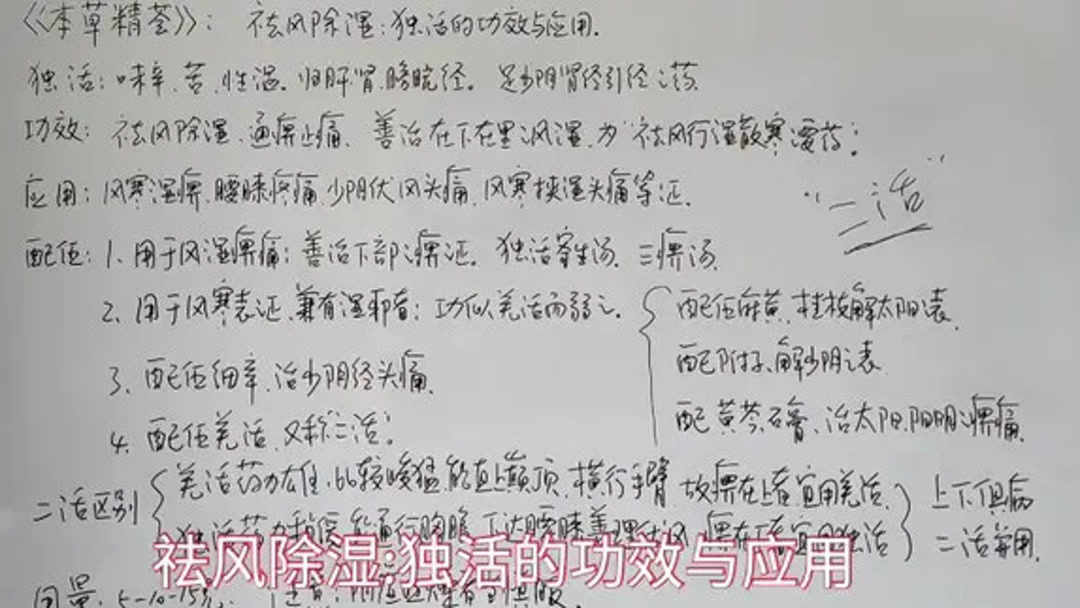 《本草精荟》：祛风除湿：独活的功效与应用.
独活：味辛、苦，性温. 归肝肾膀胱经. 足少阴肾经引经之药.
功效：祛风除湿、通痹止痛. 善治在下在里之风湿, 为"祛风行湿散寒要药".
应用：风寒湿痹、腰膝疼痛、少阴伏风头痛、风寒挟湿头痛等证.
"二活"
配伍：1、用于风湿痹痛：善治下部之痹证. 独活寄生汤. 三痹汤.
2、用于风寒表证、兼有湿邪者：功似羌活而弱之.
配伍麻黄、桂枝解太阳之表.
配附子、解少阴之表.
配黄芩石膏、治太阳、阳明之痹痛.
3、配伍细辛、治少阴经头痛.
4、配伍羌活、又称"二活".
二活区别
羌活药力雄, 比较峻猛, 能直上颠顶、横行手臂, 故痹在上者宜用羌活.
独活药力 能通行胸腹、下达腰膝善理伏风, 痹在下者宜用独活
上下俱病
二活并用.
用量：5-10-15克.
祛风除湿:独活的功效与应用